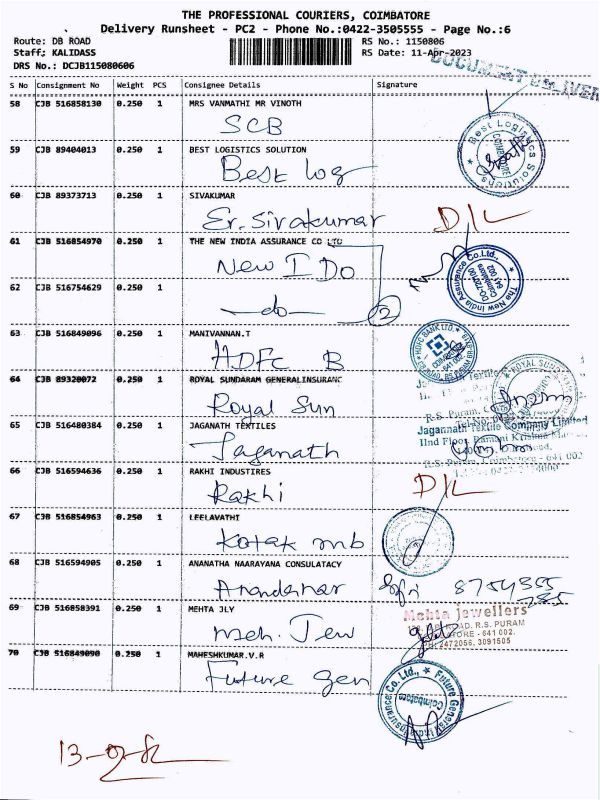 THE PROFESSIONAL COURIERS, COIMBATORE
Delivery Runsheet - PC2 - Phone No.:0422-3505555 - Page No.:6
Route: DB ROAD RS No.: 1150806
Staff; KALIDASS RS Date: 11-Apr-2023
DRS No.: DCJB115080606
DOCUMENT DELIVER
S No Consignment No Weight PCS Consignee Details Signature
58 CJB 516858130 0.250 1 MRS VANMATHI MR VINOTH
SCB
59 CJB 89404013 0.250 1 BEST LOGISTICS SOLUTION
Best Log
Best Logistics Solutions
COIMBATORE
60 CJB 89373713 0.250 1 SIVAKUMAR
Er. Sivakumar D/L
61 CJB 516854970 0.250 1 THE NEW INDIA ASSURANCE CO LTD
New I Do
The New India Assurance Co. Ltd.,
DO-720700
Coimbatore
641 002
62 CJB 516754629 0.250 1
-do- 2
63 CJB 516849096 0.250 1 MANIVANNAN.T
HDFC B
HDFC BANK LTD.
64 CJB 89320072 0.250 1 ROYAL SUNDARAM GENERALINSURANC
Royal Sun
ROYAL SUNDARAM
R.S. Puram,
65 CJB 516480384 0.250 1 JAGANATH TEXTILES
Jaganath
Jagannath Textile Company Limited
IInd Floor, Ramani Krishna
R.S. Puram, Coimbatore - 641 002
66 CJB 516594636 0.250 1 RAKHI INDUSTIRES
Rakhi D/L
67 CJB 516854963 0.250 1 LEELAVATHI
Kotak mb
68 CJB 516594905 0.250 1 ANANATHA NAARAYANA CONSULATACY
8754355
785
69 CJB 516858391 0.250 1 MEHTA JLY
meh. Jew
Mehta Jewellers
ROAD, R.S. PURAM
641 002.
PH: 2472056, 3091505
70 CJB 516849090 0.250 1 MAHESHKUMAR.V.R
Future Gen
Future Generali India Insurance Co. Ltd.,
Coimbatore